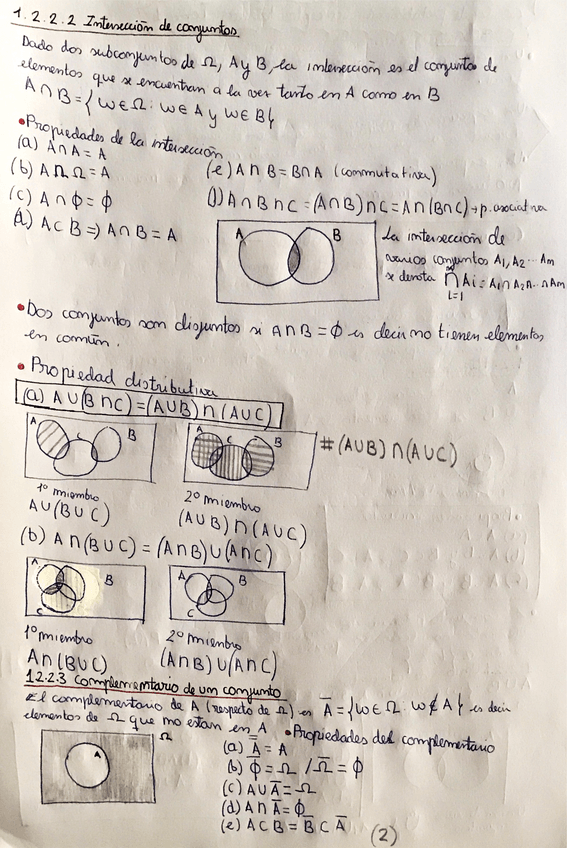 1.2.2.2 Intersección de conjuntos
Dado dos subconjuntos de Ω, A y B, la intersección es el conjunto de
elementos que se encuentran a la vez tanto en A como en B
A ∩ B = { w ∈ Ω : w ∈ A y w ∈ B }
• Propiedades de la intersección
(a) A ∩ A = A
(b) A ∩ Ω = A
(c) A ∩ Φ = Φ
(d) A ⊂ B ⇒ A ∩ B = A
(e) A ∩ B = B ∩ A (conmutativa)
(f) A ∩ B ∩ C = (A ∩ B) ∩ C = A ∩ (B ∩ C) → p. asociativa
A B
La intersección de
varios conjuntos A1, A2 ... An
se denota ∩ Ai = A1 ∩ A2 ∩ .. ∩ An
i=1
• Dos conjuntos son disjuntos si A ∩ B = Φ es decir no tienen elementos
en común.
• Propiedad distributiva
(a) A ∪ (B ∩ C) = (A ∪ B) ∩ (A ∪ C)
A C B
A C B
# (A ∪ B) ∩ (A ∪ C)
1º miembro
A ∪ (B ∪ C)
2º miembro
(A ∪ B) ∩ (A ∪ C)
(b) A ∩ (B ∪ C) = (A ∩ B) ∪ (A ∩ C)
A B
C
A B
C
1º miembro
A ∩ (B ∪ C)
2º miembro
(A ∩ B) ∪ (A ∩ C)
1.2.2.3 Complementario de un conjunto
El complementario de A (respecto de Ω) es A̅ = { w ∈ Ω : w ∉ A } es decir
elementos de Ω que no estan en A
Ω
A
• Propiedades del complementario
(a) A̿ = A
(b) Φ̅ = Ω / Ω̅ = Φ
(c) A ∪ A̅ = Ω
(d) A ∩ A̅ = Φ
(e) A ⊂ B = B̅ ⊂ A̅
(2)